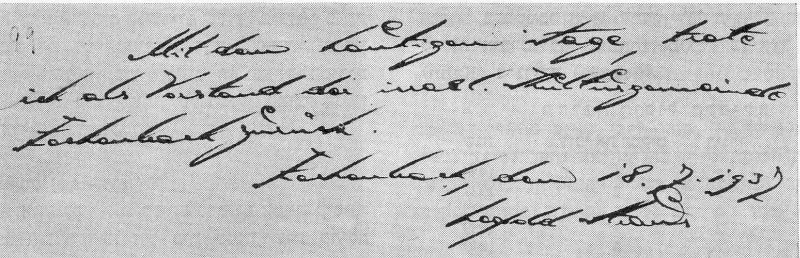 Mit dem heutigen Tage, trete
ich als Vorstand der israel. Kultusgemeinde
Eschenbach zurück.
Eschenbach, den 18.7.1937
Leopold Strauß